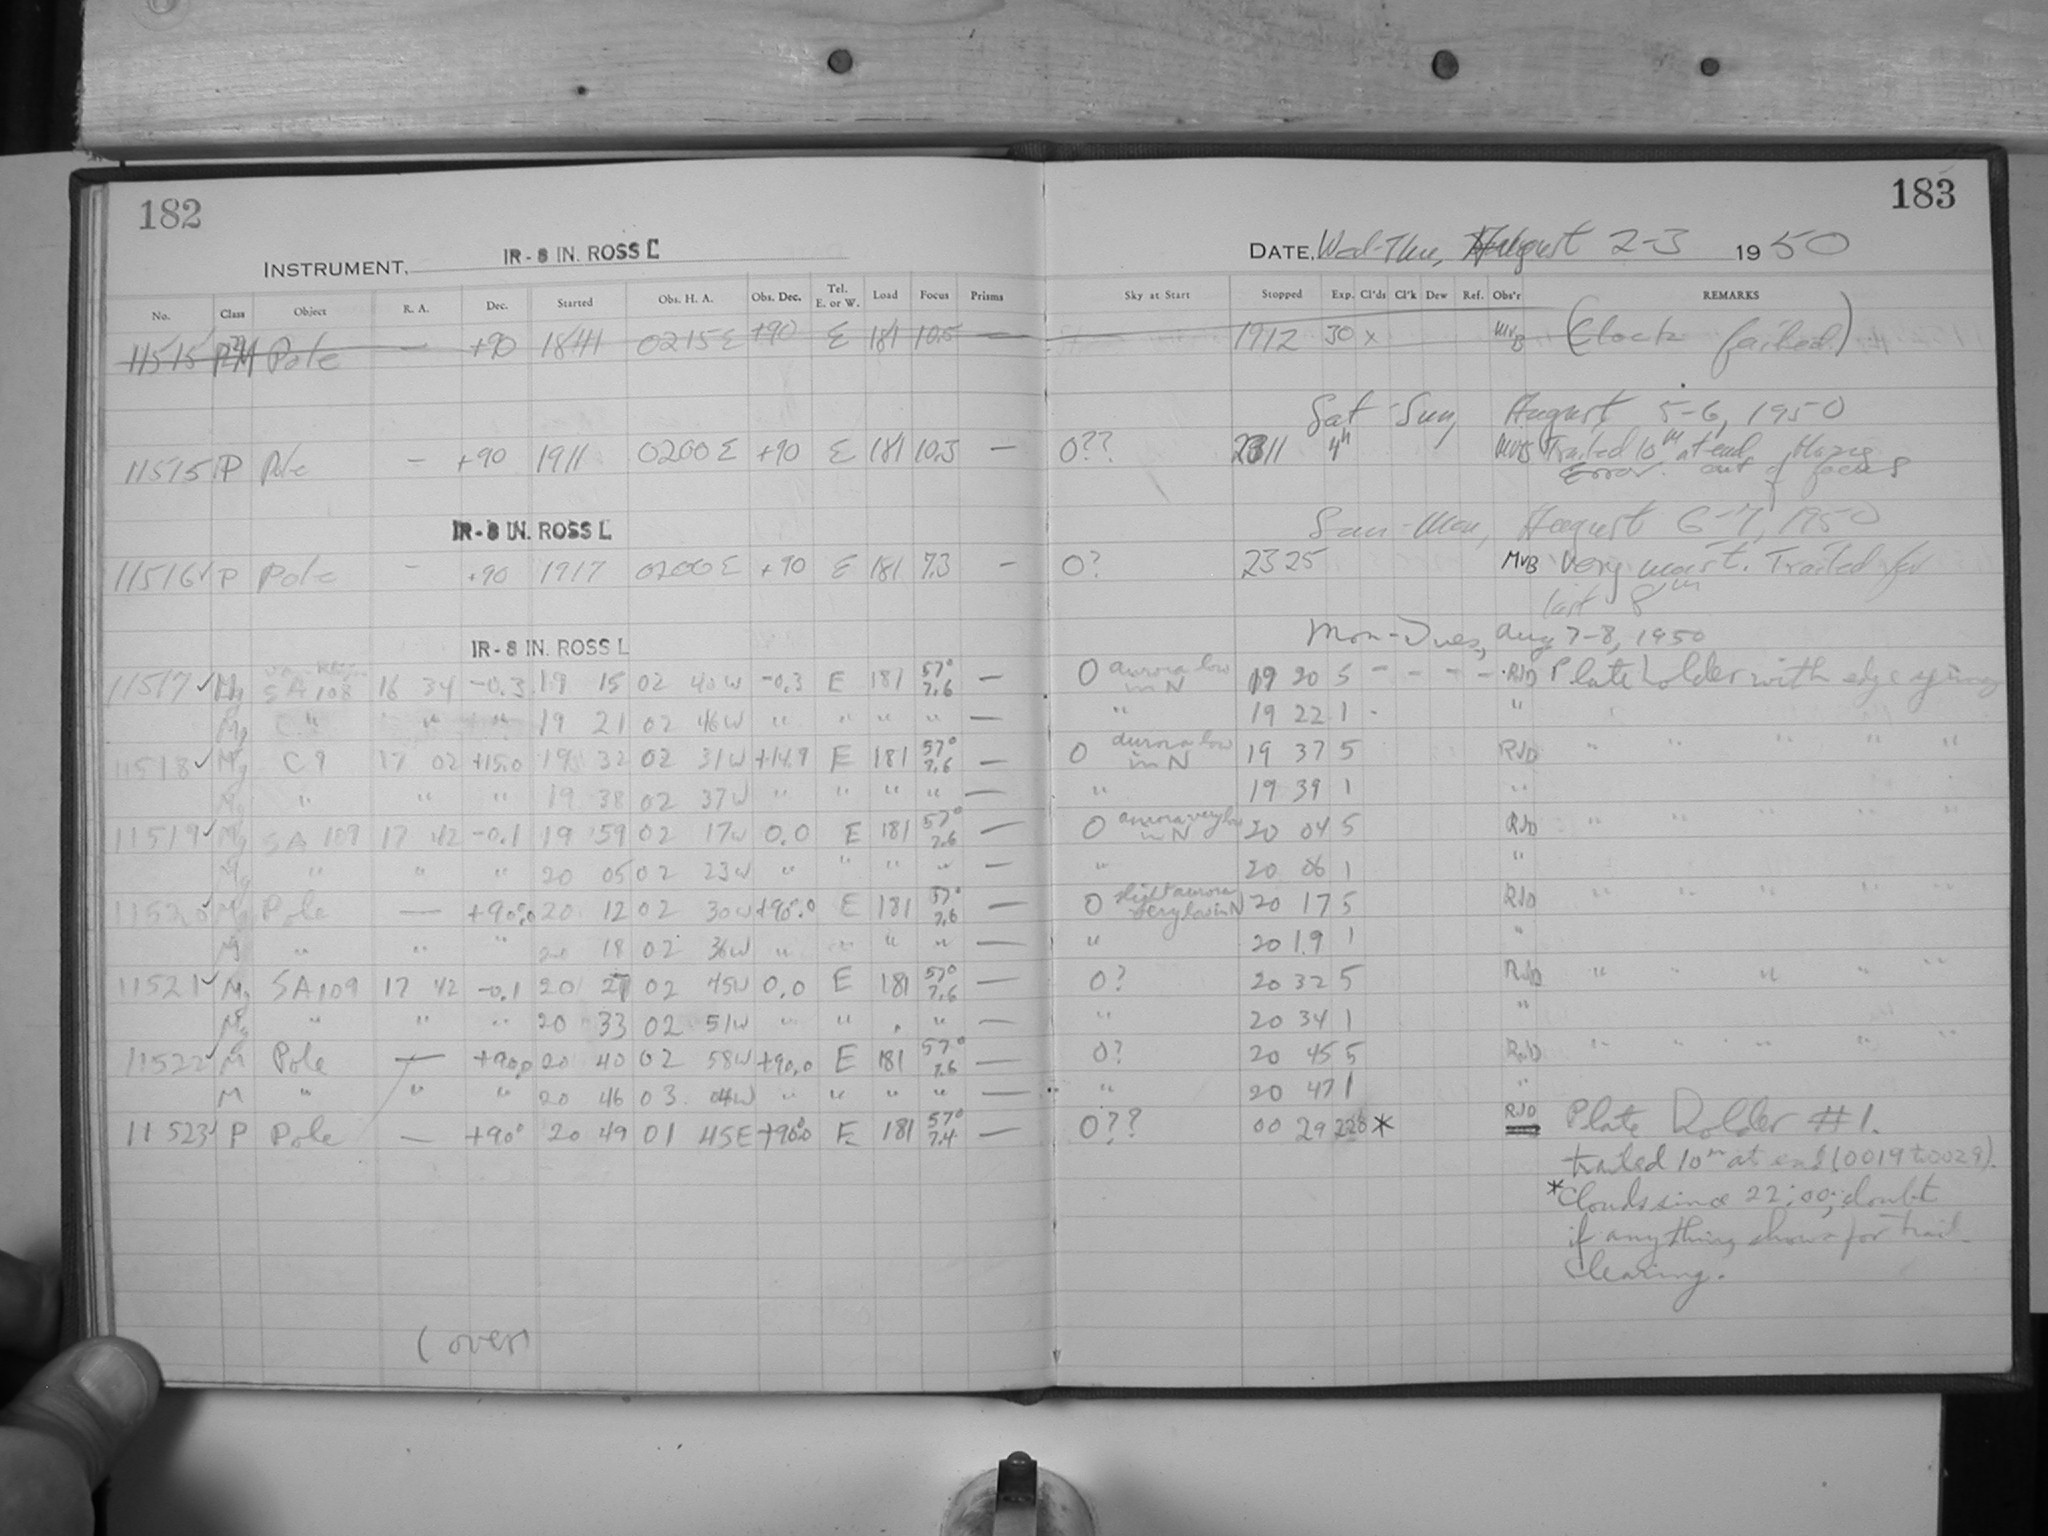 182
183
INSTRUMENT, IR - 8 IN. ROSS L
DATE, Wed-Thu, August 2-3 1950
No. Class Object R. A. Dec. Started Obs. H. A. Obs. Dec. Tel. E. or W. Load Focus Prisms Sky at Start Stopped Exp. Cl'ds Cl'k Dew Ref. Obs'r REMARKS
11515 Pole — +90 1841 0215 E +90 E 181 10.5 — 1912 30 x MvB (Clock failed)
Sat-Sun, August 5-6, 1950
11515 P Pole — +90 1911 0200 E +90 E 181 10.3 — 0?? 2311 4h MvB Trailed 10m at end Hazy
Error. out of focus
IR - 8 IN. ROSS L Sun-Mon, August 6-7, 1950
11516 ✓ P Pole - +90 1917 0200 E +90 E 181 7.3 — 0? 2325 MvB Very moist. Trailed for
last 8m
IR - 8 IN. ROSS L Mon-Tues, Aug 7-8, 1950
11517 ✓ Mg SA 108 16 34 -0.3 19 15 02 40W -0.3 E 181 57° 7.6 — 0 aurora low in N 19 20 5 - - - - RJD Plate holder with edge springs
Mg " " " 19 21 02 46W " " " " — " 19 22 1 - "
11518 ✓ Mg C9 17 02 +15.0 19 32 02 31W +14.9 E 181 57° 7.6 — 0 aurora low in N 19 37 5 RJD " " " " "
Mg " " " 19 38 02 37W " " " " — " 19 39 1 "
11519 ✓ Mg SA 109 17 42 -0.1 19 59 02 17W 0.0 E 181 57° 7.6 — 0 aurora very low in N 20 04 5 RJD " " " " "
Mg " " " 20 05 02 23W " " " " — " 20 06 1 "
11520 ✓ Mg Pole — +90.0 20 12 02 30W +90.0 E 181 57° 7.6 — 0 slight aurora very low in N 20 17 5 RJD " " " " "
Mg " " " 20 18 02 36W " " " " — " 20 19 1 "
11521 ✓ Mg SA 109 17 42 -0.1 20 27 02 45W 0.0 E 181 57° 7.6 — 0? 20 32 5 RJD " " " " "
Mg " " " 20 33 02 51W " " " — " 20 34 1 "
11522 ✓ M Pole — +90.0 20 40 02 58W +90.0 E 181 57° 7.6 — 0? 20 45 5 RJD " " " " "
M " " " 20 46 03 04W " " " " — " 20 47 1 "
11523 ✓ P Pole — +90° 20 49 01 45E +90.0 E 181 57° 7.4 — 0?? 00 29 220 * RJD Plate Holder #1.
trailed 10m at end (0019 to 0029).
*Clouds since 22:00; doubt
if anything shows for trail.
Clearing.
(over)